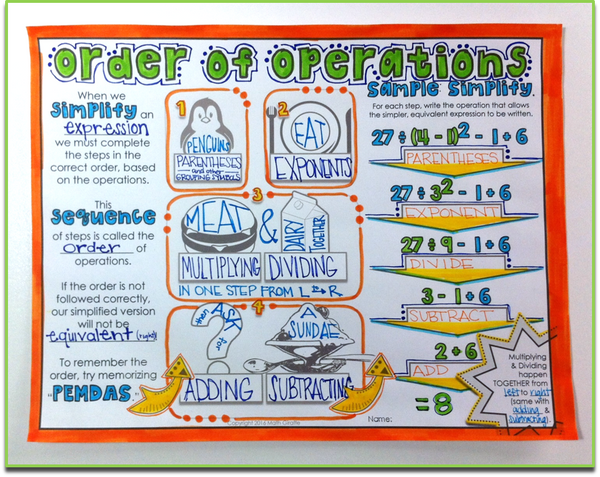 order of operations
When we
Simplify an
expression
we must complete
the steps in the
correct order, based
on the operations.
This
Sequence
of steps is called the
order of
operations.
If the order is not
followed correctly,
our simplified version
will not be
equivalent (right)!
To remember the
order, try memorizing
"PEMDAS."
1
PENGUINS
PARENTHESES
and other
GROUPING SYMBOLS
2
EAT
EXPONENTS
3
MEAT
&
DAIRY
TOGETHER
MULTIPLYING
DIVIDING
IN ONE STEP FROM L → R
4
then
ASK
for
A
SUNDAE
ADDING
SUBTRACTING
Copyright 2016 Math Giraffe
Name:
Sample Simplify.
For each step, write the operation that allows
the simpler, equivalent expression to be written.
27 ÷ (4 - 1)² - 1 + 6
PARENTHESES
27 ÷ 3² - 1 + 6
EXPONENT
27 ÷ 9 - 1 + 6
DIVIDE
3 - 1 + 6
SUBTRACT
2 + 6
ADD
= 8
Multiplying
& Dividing
happen
TOGETHER from
left to right
(same with
adding &
subtracting).